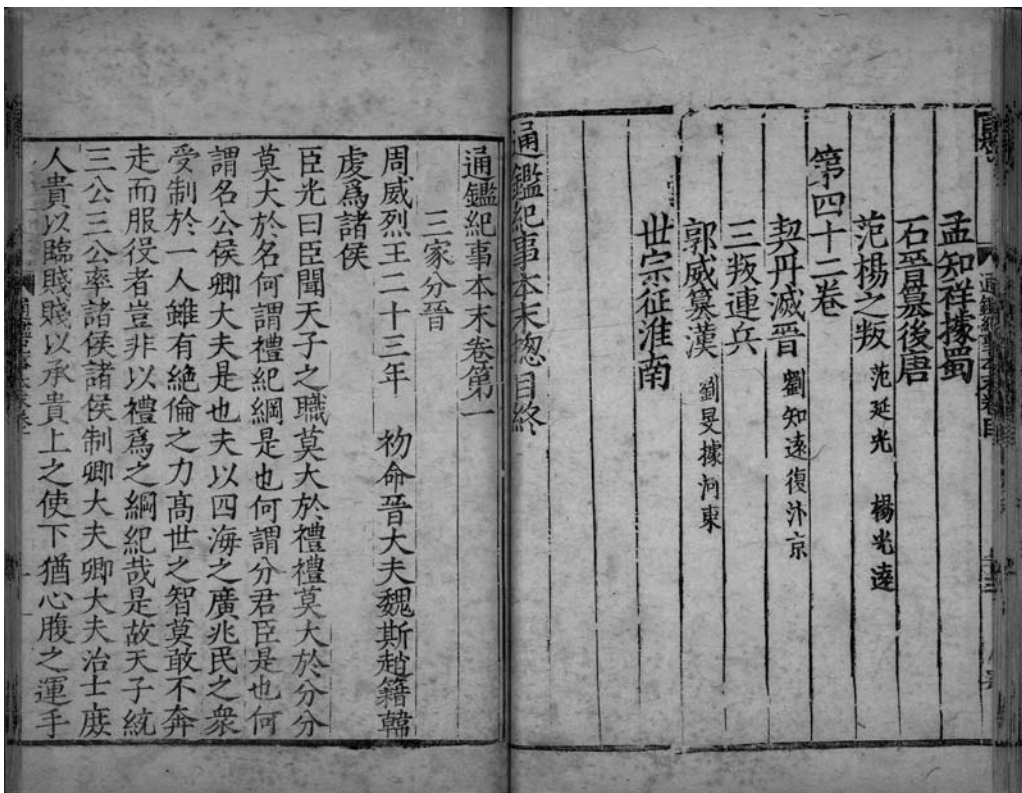 孟知祥據蜀
石晉篡後唐
范楊之叛 范延光 楊光遠
第四十二卷
契丹滅晉 劉知遠復汴京
三叛連兵
郭威篡漢 劉旻據河東
世宗征淮南
通鑑紀事本末揔目終
通鑑紀事本末卷第一
三家分晉
周威烈王二十三年 初命晉大夫魏斯趙籍韓
虔爲諸侯
臣光曰臣聞天子之職莫大於禮禮莫大於分分
莫大於名何謂禮紀綱是也何謂分君臣是也何
謂名公侯卿大夫是也夫以四海之廣兆民之衆
受制於一人雖有絶倫之力髙世之智莫敢不奔
走而服役者豈非以禮爲之綱紀哉是故天子統
三公三公率諸侯諸侯制卿大夫卿大夫治士庶
人貴以臨賤賤以承貴上之使下猶心腹之運手